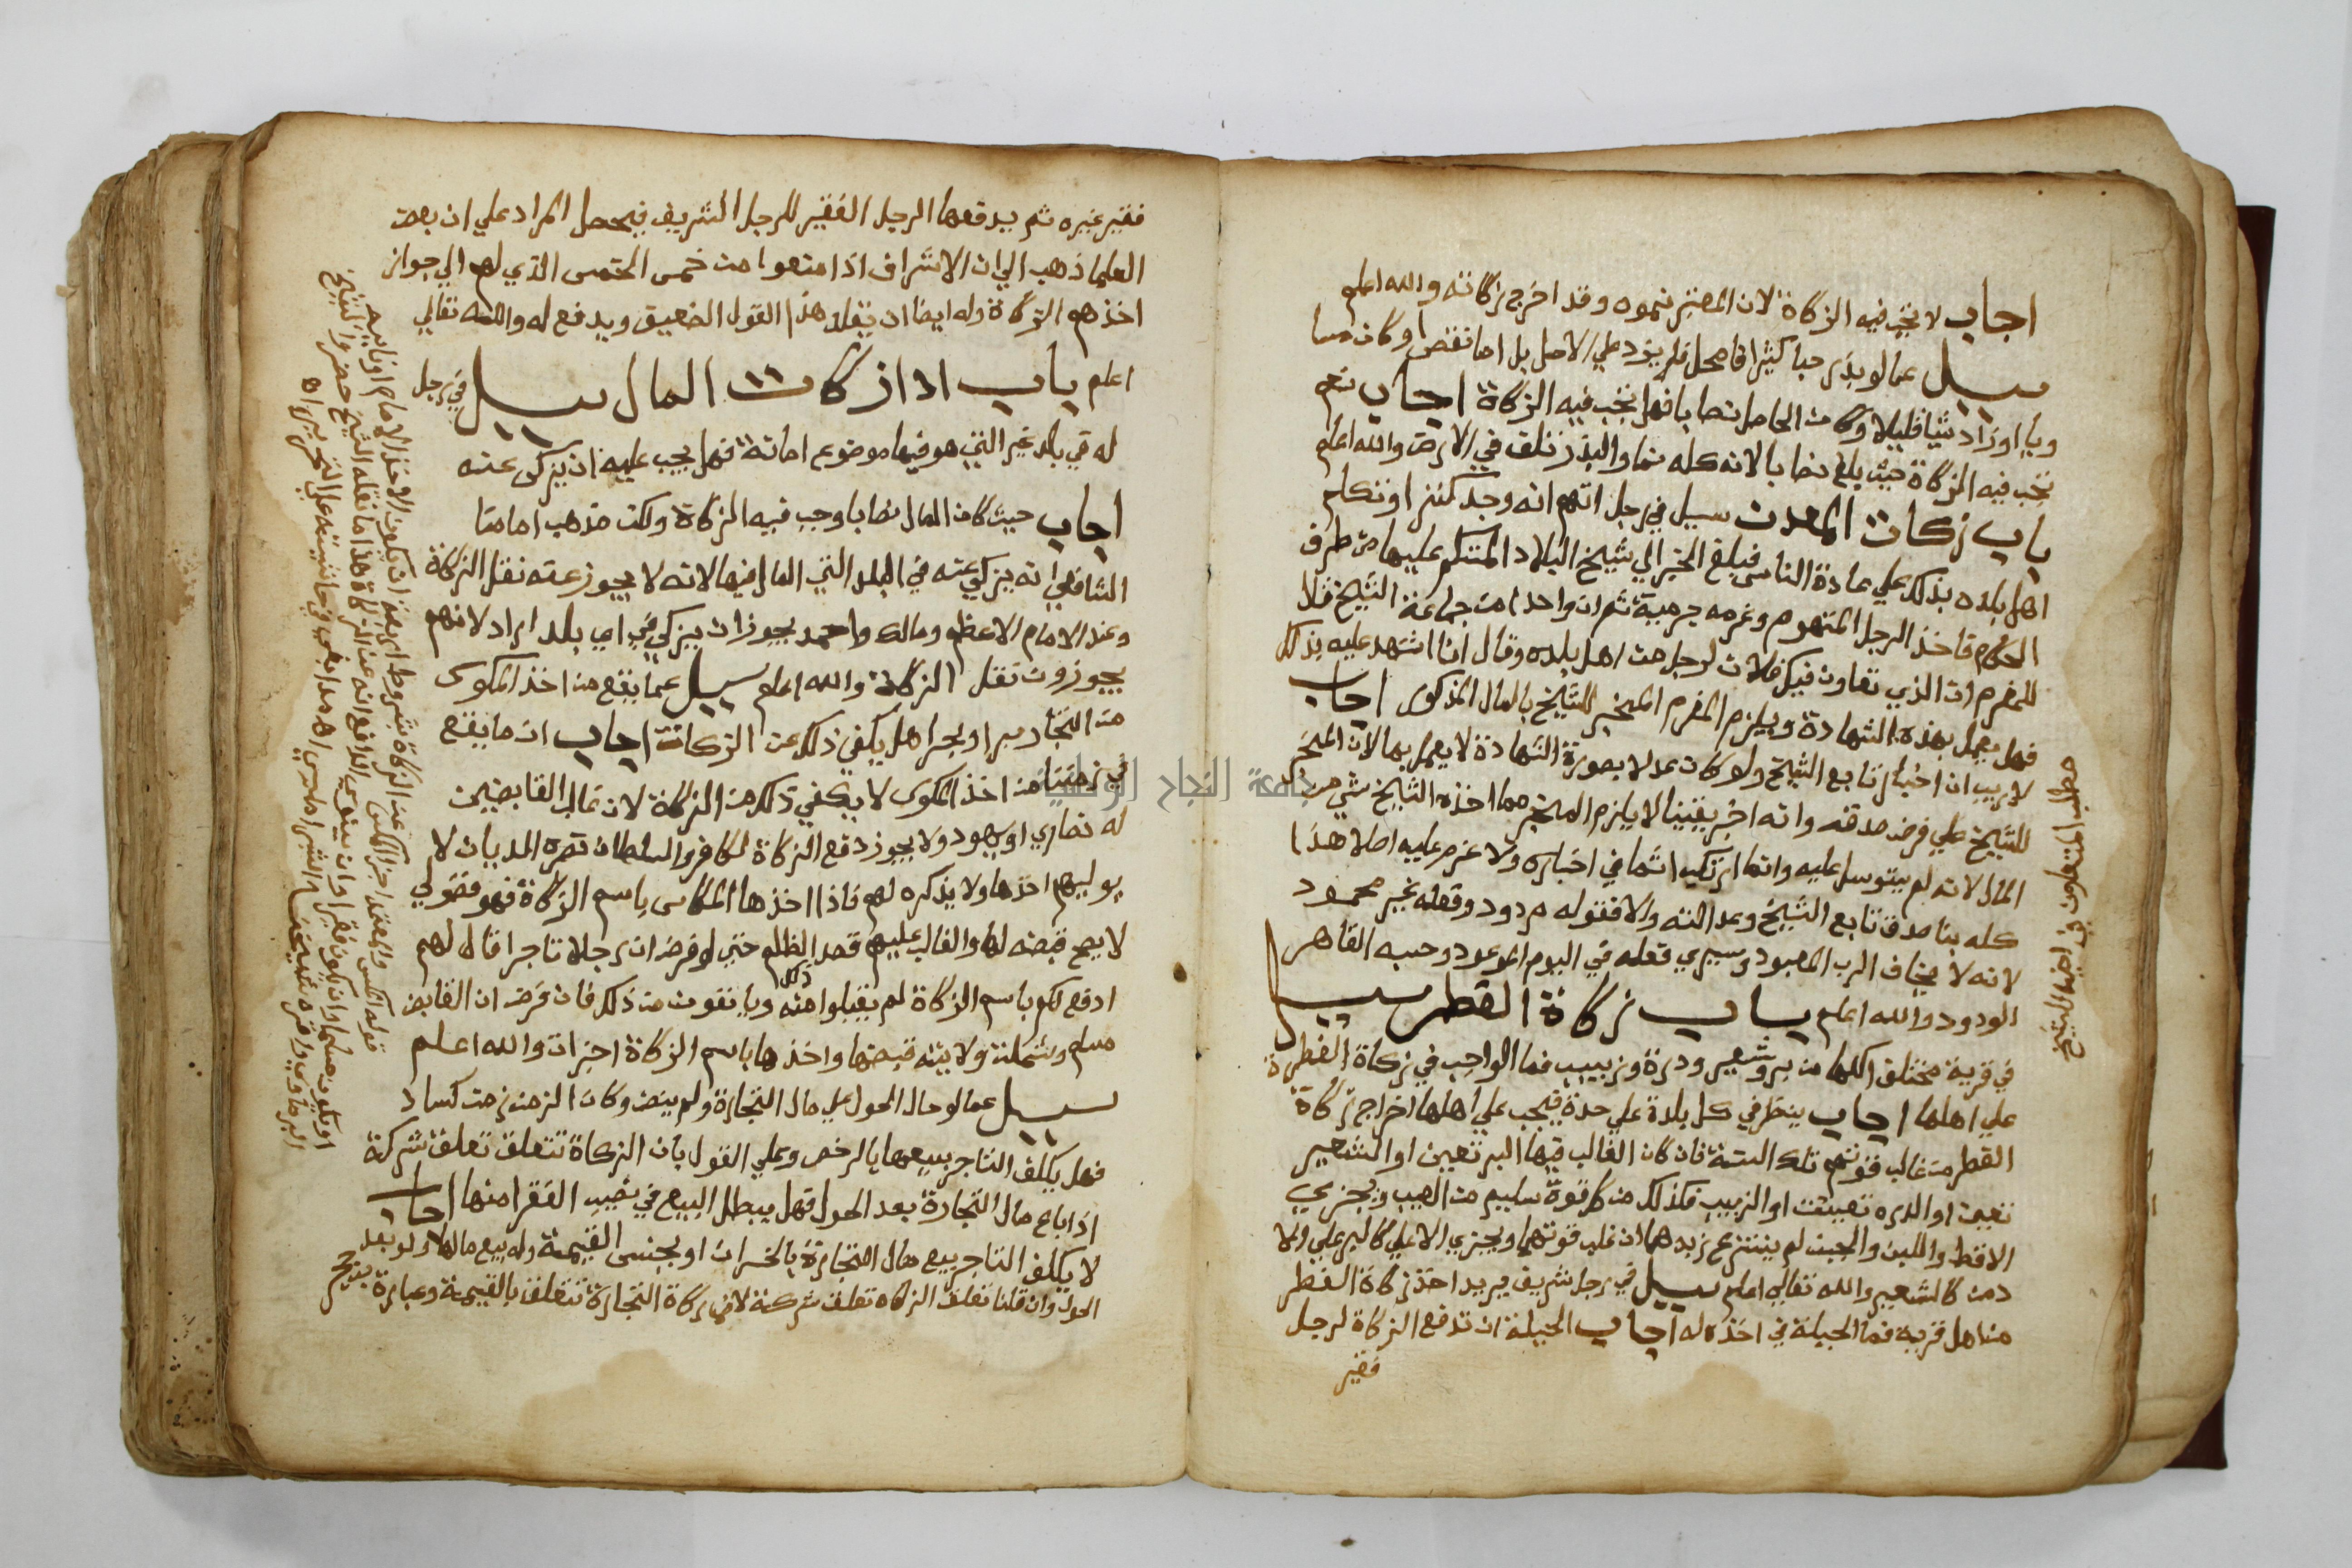 اجاب لا تجب فيه الزكاة لان المعتبر نموه وقد اخرج زكاته والله اعلم
سيل عما لو بذر حبا كثيرا فامحل فلم يزد على الاصل بل اما نقص او كان مسا
ويا اوزاد شيا قليلا وكان الحاصل نصابا فهل تجب فيه الزكاة اجاب نعم
تجب فيه الزكاة حيث بلغ نصابا لانه كله نما والبذر تلف في الارض والله اعلم
باب زكات المعدن سيل في رجل اتهم انه وجد كنز اوتكلم
اهل بلده بذلك علي عادة الناس فبلغ الخبر الي شيخ البلاد المتكلم عليها من طرف
الحكام فاخذ الرجل المتهوم وغرمه جريمة ثم ان واحدا من جماعة الشيخ قال
للمغرم ان الذي تعاون فيك فلان لرجل من اهل بلده وقال انا اشهد عليه بذلك
فهل يعمل بهذه الشهادة ويلزم المغرم المخبر للشيخ بالمال المذكور اجاب
لا ريب ان اخبار تابع الشيخ ولو كان عدلا بصورة الشهادة لا يعمل بها لان المخبر
للشيخ علي فرض صدقه وانه اخبر يقينا لا يلزم المخبر مما اخذه الشيخ شي من
المال لانه لم يتوسل عليه وانما ارتكب اثما في اخباره ولا غرم عليه اصلا هذا
كله بنا صدق تابع الشيخ وعدالته والا فقوله مردود وفعله غير محمود
لانه لا يخاف الرب المعبود وسيري فعله في اليوم الموعود وحسبه القاهر
الودود والله اعلم باب زكاة الفطر سيل
في قرية مختلف اكلها من بر وشعير ودرة وزبيب فما الواجب في زكاة الفطرة
علي اهلها اجاب ينظر في كل بلدة علي حدة فيجب علي اهلها اخراج زكاة
الفطر من غالب قوتهم تلك السنة فان كان الغالب فيها البر تعين او الشعير
تعين او الدره تعينت او الزبيب فكذلك من كل قوة سليم من العيب ويجزي
الاقط واللبن والجبن لم ينتزع زبدهما ان غلب قوتهما ويجزي الاعلي كالبر علي الا
دمن كالشعير والله تعالي اعلم سيل في رجل شريف يريد اخذ زكاة الفطر
من اهل قرية فما الحيلة في اخذه له اجاب الحيلة ان تدفع الزكاة لرجل
فقير
مطلب المتعاون في اخبار الشيخ
فقير غيره ثم يدفعها الرجل الفقير للرجل الشريف فيحصل المراد علي ان بعض
العلما ذهب الي ان الاشراف اذا منعوا من خمس الخمس الذي لهم الي جواز
اخذهم الزكاة وله ايضا ان يقلد هذا القول الضعيف ويدفع له والله تعالي
اعلم باب ادا زكات المال سيل في رجل
له في بلد غير التي هو فيها موضوع امانة فهل يجب عليه ان يزكي عنه
اجاب حيث كان المال نصابا وجب فيه الزكاة ولكن مذهب امامنا
الشافعي انه يزكي عنه في البلد التي المال فيها لانه لا يجوز عنه نقل الزكاة
وعند الامام الاعظم ومالك واحمد يجوز ان يزكي في اي بلد اراد لانهم
يجوزون نقل الزكاة والله اعلم سيل عما يقع من اخذ المكوس
من التجار برا وبحرا هل يكفي ذلك عن الزكات اجاب ان ما يقع
في زمننا من اخذ المكوس لا يكفي ذلك من الزكاة لان غالب القابضين
له نصاري او يهود ولا يجوز دفع الزكاة لكافر والسلطان نصره الديان لا
يوليهم اخذها ولا يذكره لهم فاذا اخذها المكاس باسم الزكاة فهو فضولي
لا يصح قبضه لها والغالب عليهم قصد الظلم حتي لو فرض ان رجلا تاجرا قال لهم
ادفع لكم باسم الزكاة لم يقبلوا منه ذلك ويانفون من ذلك فان فرض ان القابض
مسلم وشملته ولايته قبضها واخذها باسم الزكاة اجزات والله اعلم
سيل عما لو حال الحول علي مال التجارة ولم ينض وكان الزمن زمن كساد
فهل يكلف التاجر ببيعها بالرخص وعلي القول بان الزكاة تتعلق تعلق شركة
اذا باع مال التجارة بعد الحول فهل يبطل البيع في نصيب الفقرا منها اجاب
لا يكلف التاجر بيع مال التجارة بالخسران او بجنس القيمة وله بيع مالها ولو بعد
الحول وان قلنا تعلق الزكاه تعلق شركة لان زكاة التجارة تتعلق بالقيمة وعبارة